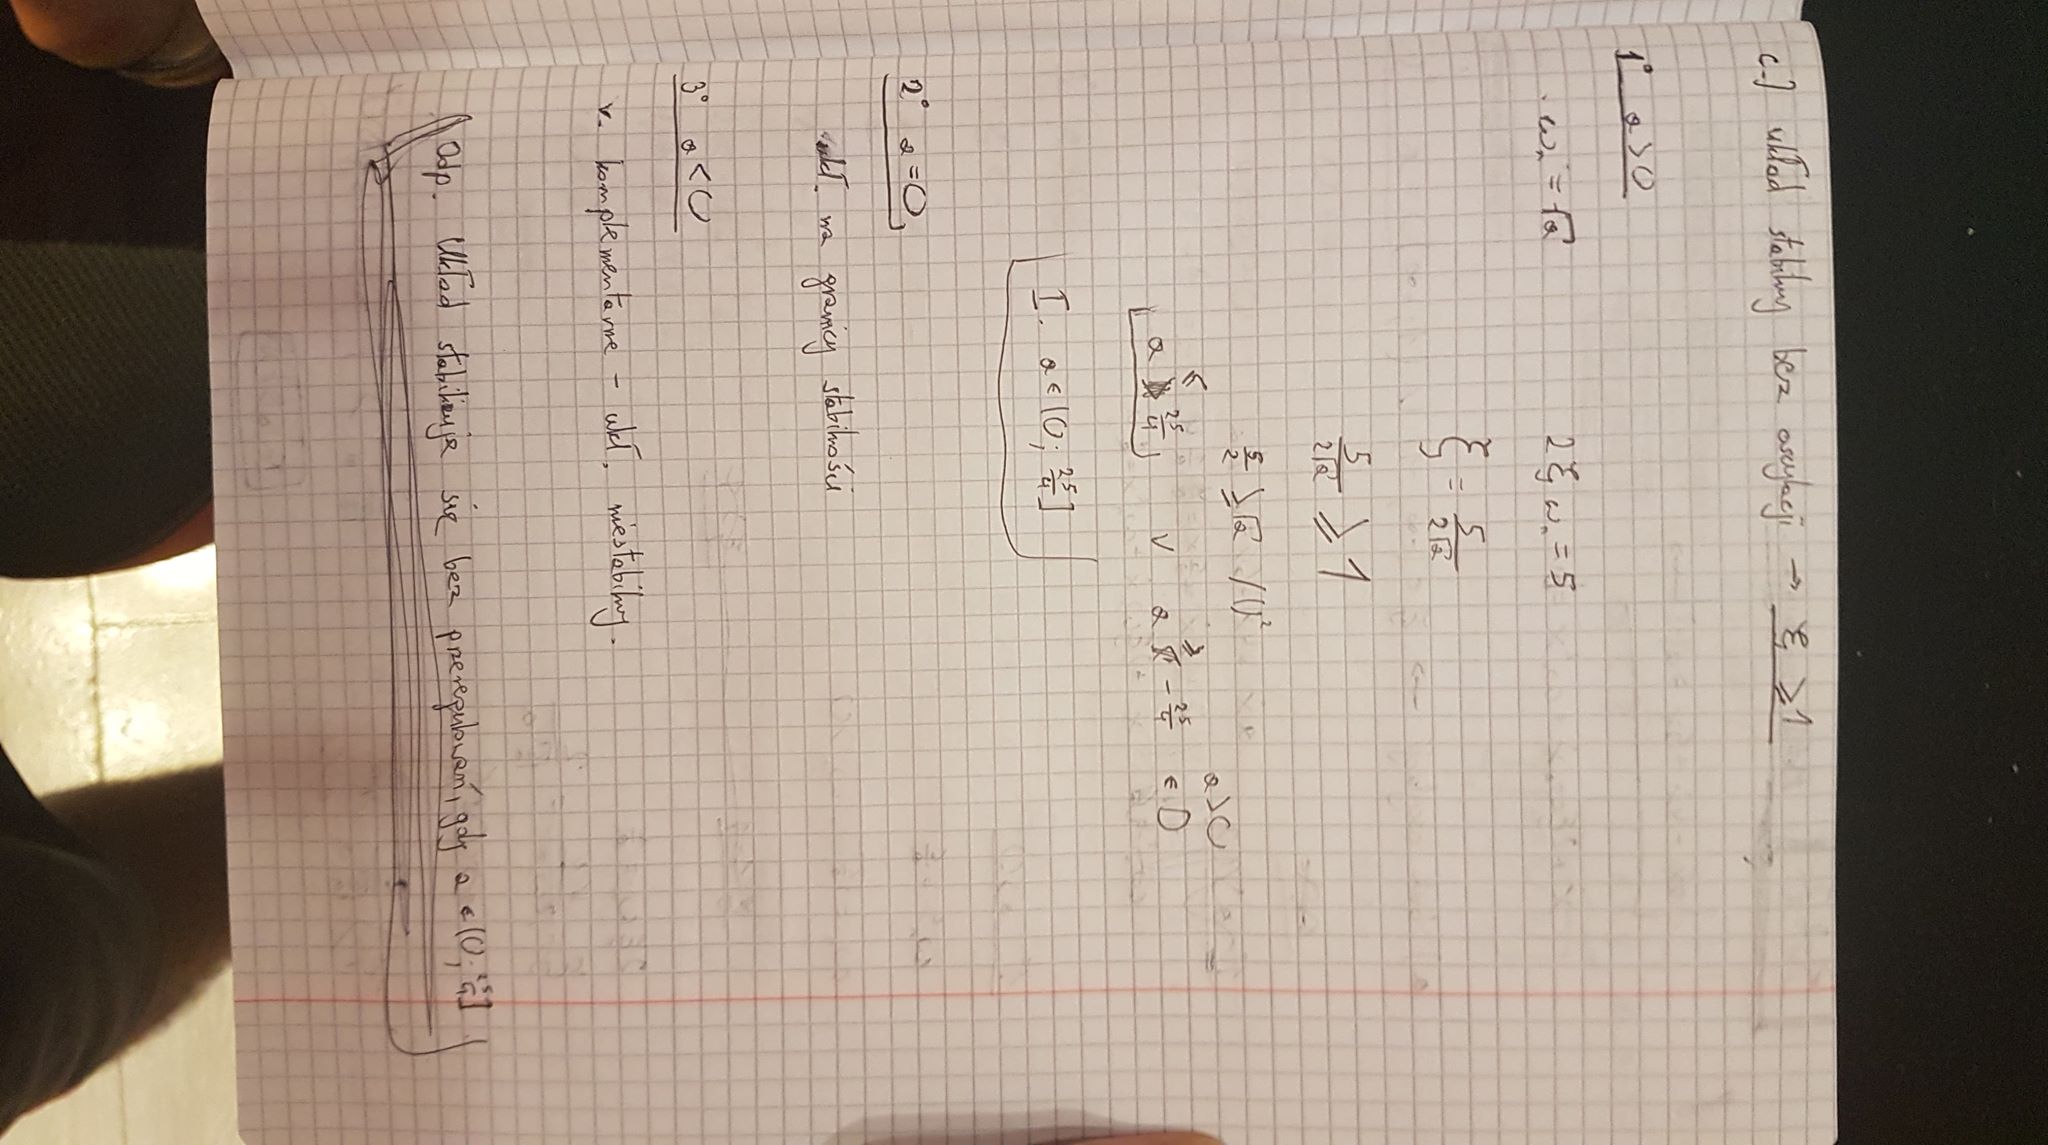 c.) układ stabilny bez oscylacji → ξ ≥ 1
1° a > 0
ωₙ = √a 2ξωₙ = 5
ξ = 5/(2√a)
5/(2√a) ≥ 1
5/2 ≥ √a /()²
a > 0
a ≤ 25/4 ∨ a ≥ -25/4 ∈ D
I. a ∈ (0; 25/4]
2° a = 0,
ukł. na granicy stabilności
3° a < 0
v. komplementarne - ukł. niestabilny.
Odp. Układ stabilizuje się bez przeregulowań, gdy a ∈ (0; 25/4]